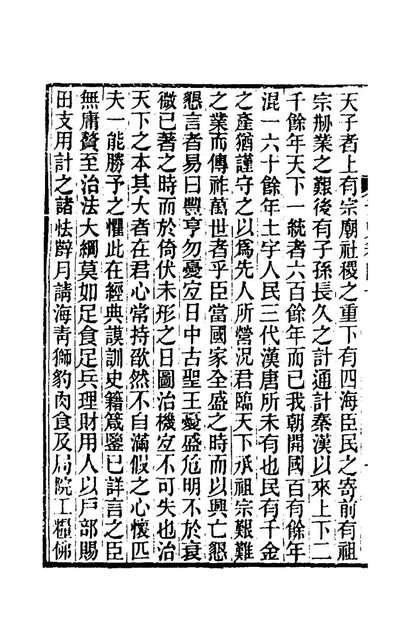 天子者上有宗廟社稷之重下有四海臣民之寄前有祖
宗刱業之艱後有子孫長久之計通計秦漢以來上下二
千餘年天下一統者六百餘年而已我朝開國百有餘年
混一六十餘年土宇人民三代漢唐所未有也民有千金
之產猶謹守之以爲先人所營況君臨天下承祖宗艱難
之業而傳祚萬世者乎臣當國家全盛之時而以興亡懇
懇言者易曰豐亨勿憂宜日中古聖王憂盛危明不於衰
微已著之時而於倚伏未形之日圖治機宜不可失也治
天下之本其大者在君心常持欿然不自滿假之心懷匹
夫一能勝予之懼此在經典謨訓史籍箴鑒已詳言之臣
無庸贅至治法大綱莫如足食足兵理財用人以戶部賜
田支用計之諸怯薛月請海青獅豹肉食及局院工糧佛